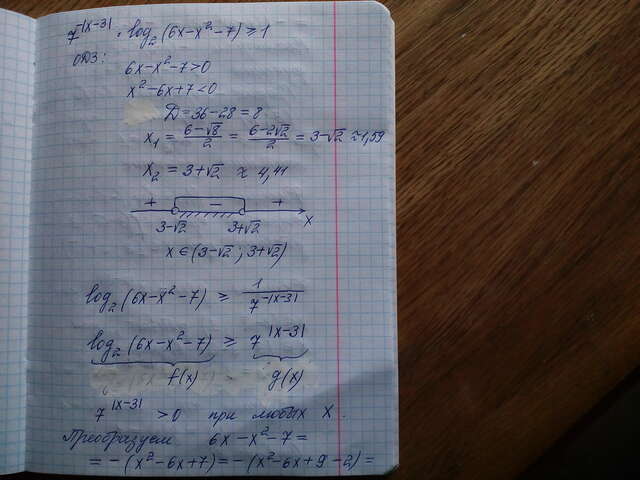 7^{-|x-3|} · log₂(6x-x²-7) ≥ 1
ОДЗ:
6x-x²-7>0
x²-6x+7<0
D=36-28=8
x₁ = \frac{6-√8}{2} = \frac{6-2√2}{2} = 3-√2 ≈1,59
x₂ = 3+√2 ≈ 4,41
+ - +
3-√2 3+√2 x
x ∈ (3-√2 ; 3+√2)
log₂(6x-x²-7) ≥ \frac{1}{7^{-|x-3|}}
log₂(6x-x²-7) ≥ 7^{|x-3|}
f(x) g(x)
7^{|x-3|} >0 при любых x.
Преобразуем 6x-x²-7=
= -(x²-6x+7) = -(x²-6x+9-2) =